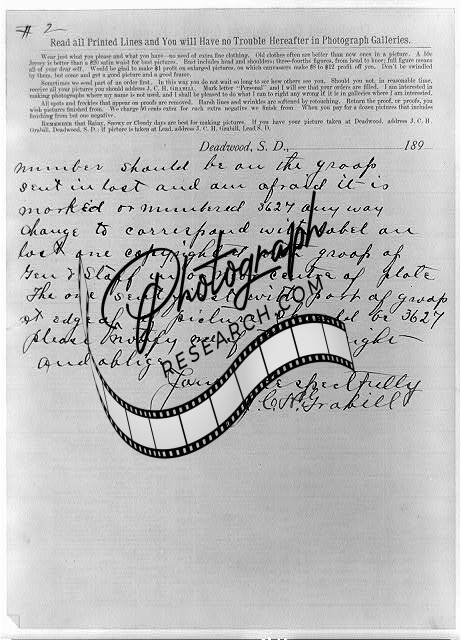 # 2
Read all Printed Lines and You will Have no Trouble Hereafter in Photograph Galleries.
Wear just what you please and what you have—no need of extra fine clothing. Old clothes often are better than new ones in a picture. A 50c
Jersey is better than a $20 satin waist for best pictures. Bust includes head and shoulders; three-fourths figures, from head to knee; full figure means
all of your dear self. Would be glad to make $4 profit on enlarged pictures, on which canvassers make $8 to $12 profit off you. Don't be swindled
by them, but come and get a good picture and a good frame.
Sometimes we send part of an order first. In this way you do not wait so long to see how others see you. Should you not, in reasonable time,
receive all your pictures you should address J. C. H. GRABILL. Mark letter "Personal" and I will see that your orders are filled. I am interested in
making photographs where my name is not used, and I shall be pleased to do what I can to right any wrong if it is in galleries where I am interested.
All spots and freckles that appear on proofs are removed. Harsh lines and wrinkles are softened by retouching. Return the proof, or proofs, you
wish pictures finished from. We charge 50 cents extra for each extra negative we finish from. When you pay for a dozen pictures that includes
finishing from but one negative.
REMEMBER that Rainy, Snowy or Cloudy days are best for making pictures. If you have your picture taken at Deadwood, address J. C. H.
Grabill, Deadwood, S. D.; if picture is taken at Lead, address J. C. H. Grabill, Lead S. D.
Deadwood, S. D., 189
number should be on the groop
sent in lost and am afraid it is
marked or numbered 3627 any way
change to correspond with label on
lost one copyright groop of
Gen & Staff in centre of plate
The one sent first with part of groop
at edge of picture should be 3627
please notify me if right
and oblige
Yours Respectfully
J.C.H. Grabill
Photograph
RESEARCH.COM